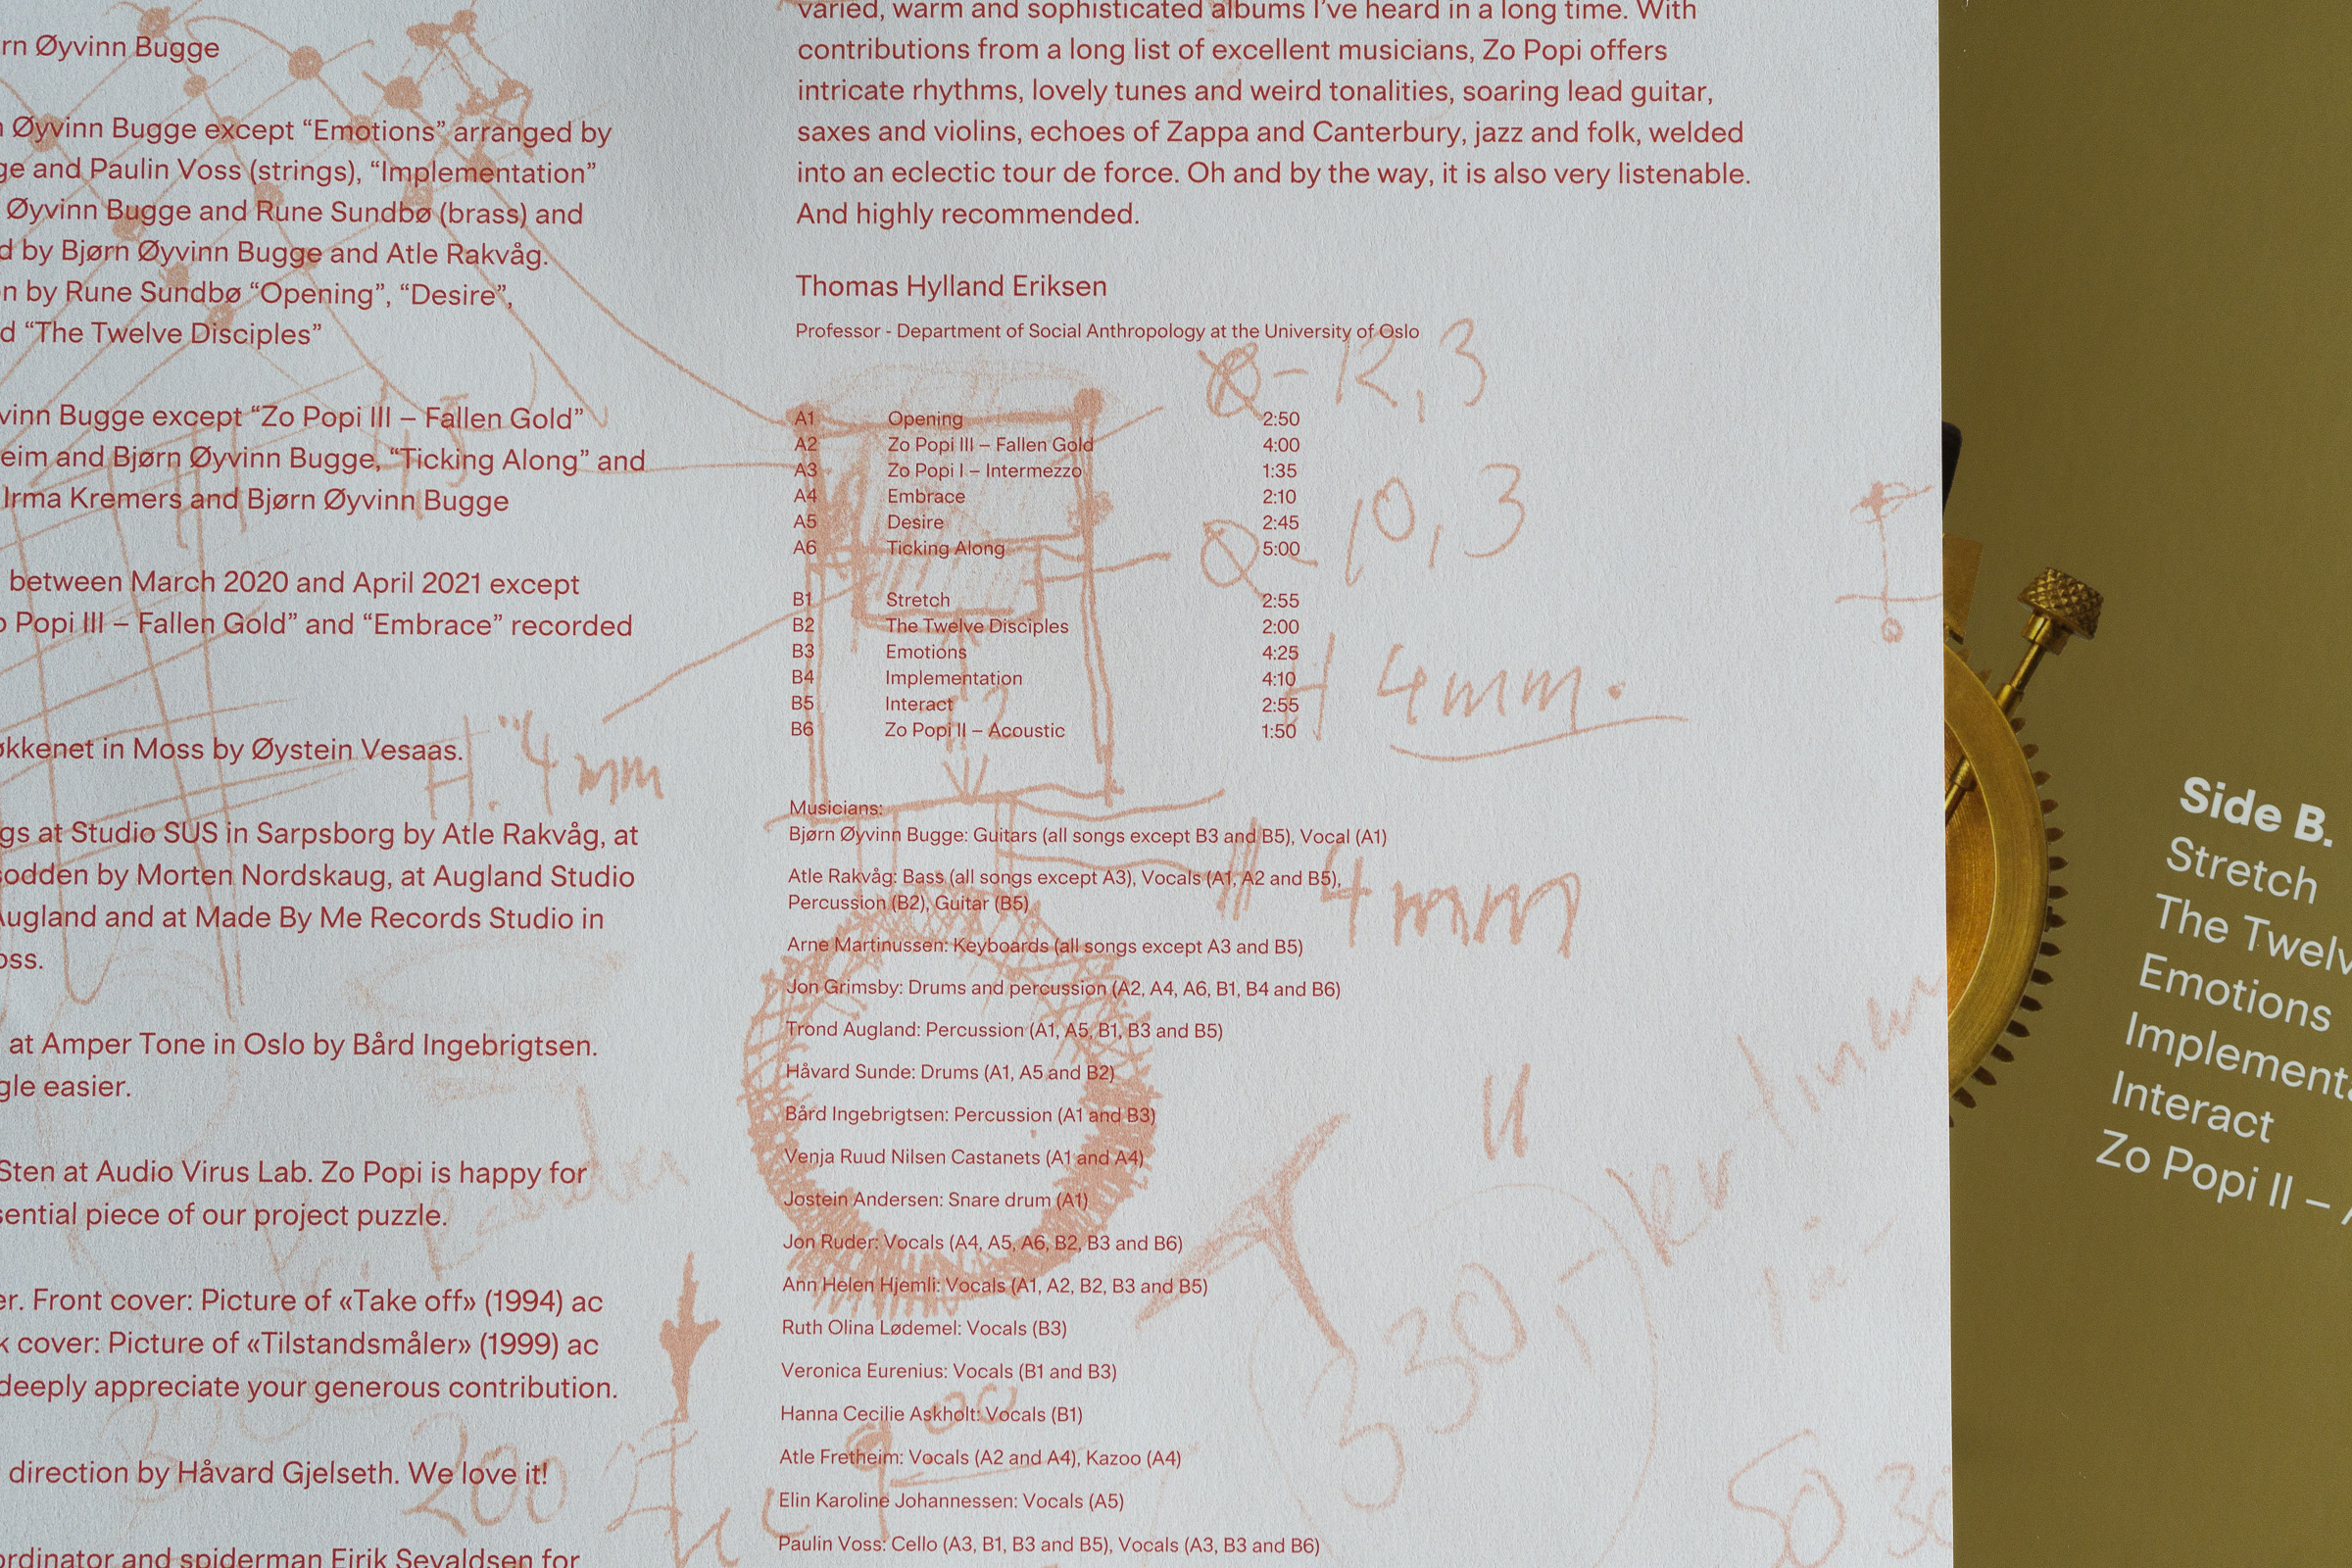 rn Øyvinn Bugge
Øyvinn Bugge except “Emotions” arranged by
ge and Paulin Voss (strings), “Implementation”
Øyvinn Bugge and Rune Sundbø (brass) and
d by Bjørn Øyvinn Bugge and Atle Rakvåg.
n by Rune Sundbø “Opening”, “Desire”,
d “The Twelve Disciples”
vinn Bugge except “Zo Popi III – Fallen Gold”
eim and Bjørn Øyvinn Bugge, “Ticking Along” and
Irma Kremers and Bjørn Øyvinn Bugge
between March 2020 and April 2021 except
o Popi III – Fallen Gold” and “Embrace” recorded
økkenet in Moss by Øystein Vesaas.
H. 4 mm
gs at Studio SUS in Sarpsborg by Atle Rakvåg, at
sodden by Morten Nordskaug, at Augland Studio
Augland and at Made By Me Records Studio in
oss.
at Amper Tone in Oslo by Bård Ingebrigtsen.
gle easier.
Sten at Audio Virus Lab. Zo Popi is happy for
sential piece of our project puzzle.
er. Front cover: Picture of «Take off» (1994) ac
k cover: Picture of «Tilstandsmåler» (1999) ac
deeply appreciate your generous contribution.
direction by Håvard Gjelseth. We love it!
200
ordinator and spiderman Eirik Sevaldsen for
varied, warm and sophisticated albums I’ve heard in a long time. With
contributions from a long list of excellent musicians, Zo Popi offers
intricate rhythms, lovely tunes and weird tonalities, soaring lead guitar,
saxes and violins, echoes of Zappa and Canterbury, jazz and folk, welded
into an eclectic tour de force. Oh and by the way, it is also very listenable.
And highly recommended.
Thomas Hylland Eriksen
Professor - Department of Social Anthropology at the University of Oslo
Ø - 12,3
A1 Opening 2:50
A2 Zo Popi III – Fallen Gold 4:00
A3 Zo Popi I – Intermezzo 1:35
A4 Embrace 2:10
A5 Desire 2:45
A6 Ticking Along 5:00
Ø - 10,3
B1 Stretch 2:55
B2 The Twelve Disciples 2:00
B3 Emotions 4:25
B4 Implementation 4:10
B5 Interact 2:55
B6 Zo Popi II – Acoustic 1:50
H 4mm.
12
Musicians:
Bjørn Øyvinn Bugge: Guitars (all songs except B3 and B5), Vocal (A1)
Atle Rakvåg: Bass (all songs except A3), Vocals (A1, A2 and B5),
Percussion (B2), Guitar (B5)
4mm
Arne Martinussen: Keyboards (all songs except A3 and B5)
Jon Grimsby: Drums and percussion (A2, A4, A6, B1, B4 and B6)
Trond Augland: Percussion (A1, A5, B1, B3 and B5)
Håvard Sunde: Drums (A1, A5 and B2)
Bård Ingebrigtsen: Percussion (A1 and B3)
Venja Ruud Nilsen Castanets (A1 and A4)
Jostein Andersen: Snare drum (A1)
Jon Ruder: Vocals (A4, A5, A6, B2, B3 and B6)
Ann Helen Hjemli: Vocals (A1, A2, B2, B3 and B5)
Ruth Olina Lødemel: Vocals (B3)
Veronica Eurenius: Vocals (B1 and B3)
Hanna Cecilie Askholt: Vocals (B1)
Atle Fretheim: Vocals (A2 and A4), Kazoo (A4)
Elin Karoline Johannessen: Vocals (A5)
Paulin Voss: Cello (A3, B1, B3 and B5), Vocals (A3, B3 and B6)
330,-
Side B.
Stretch
The Twelv
Emotions
Implementa
Interact
Zo Popi II –